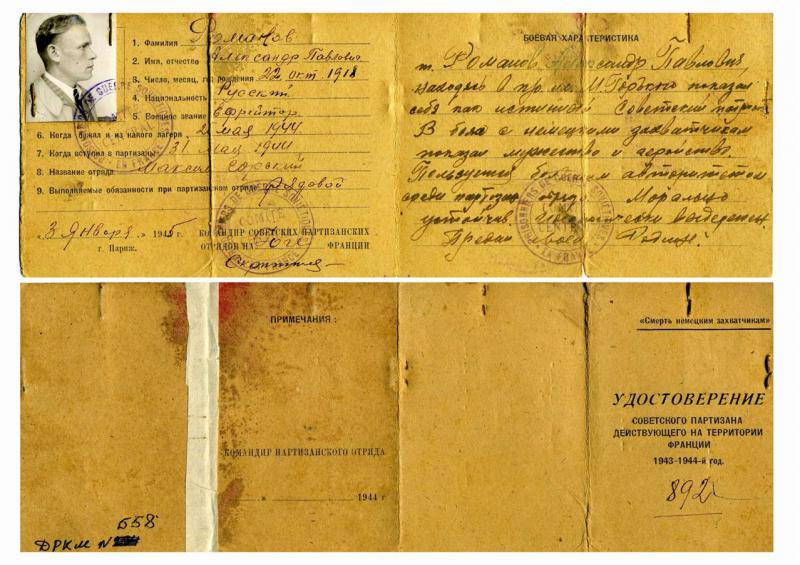 1. Фамилия Романов
2. Имя, отчество Александр Павлович
3. Число, месяц, год рождения 22 окт 1918
4. Национальность Русский
5. Военное звание Ефрейтор
6. Когда бежал и из какого лагеря мая 1944
7. Когда вступил в партизаны 31 мая 1944
8. Название отряда Максим Горький
9. Выполняемые обязанности при партизанском отряде рядовой
„3 Января 1945г.
г. Париж.
КОМАНДИР СОВЕТСКИХ ПАРТИЗАНСКИХ
ОТРЯДОВ НА Юге ФРАНЦИИ
БОЕВАЯ ХАРАКТЕРИСТИКА
т. Романов Александр Павлович
находясь в М. Горького показал
себя как истинный Советский патриот
В боях с немецкими захватчиками
показал мужество и геройство.
Пользуется большим авторитетом
среди партизан отряда Морально
устойчив Политически выдержен.
Предан своей Родине!
COMITÉ
CENTRAL
ПРИМЕЧАНИЯ:
КОМАНДИР ПАРТИЗАНСКОГО ОТРЯДА
1944 г.
558
ДРКМ №
«Смерть немецким захватчикам»
УДОСТОВЕРЕНИЕ
СОВЕТСКОГО ПАРТИЗАНА
ДЕЙСТВУЮЩЕГО НА ТЕРРИТОРИИ
ФРАНЦИИ
1943-1944-й год.
892